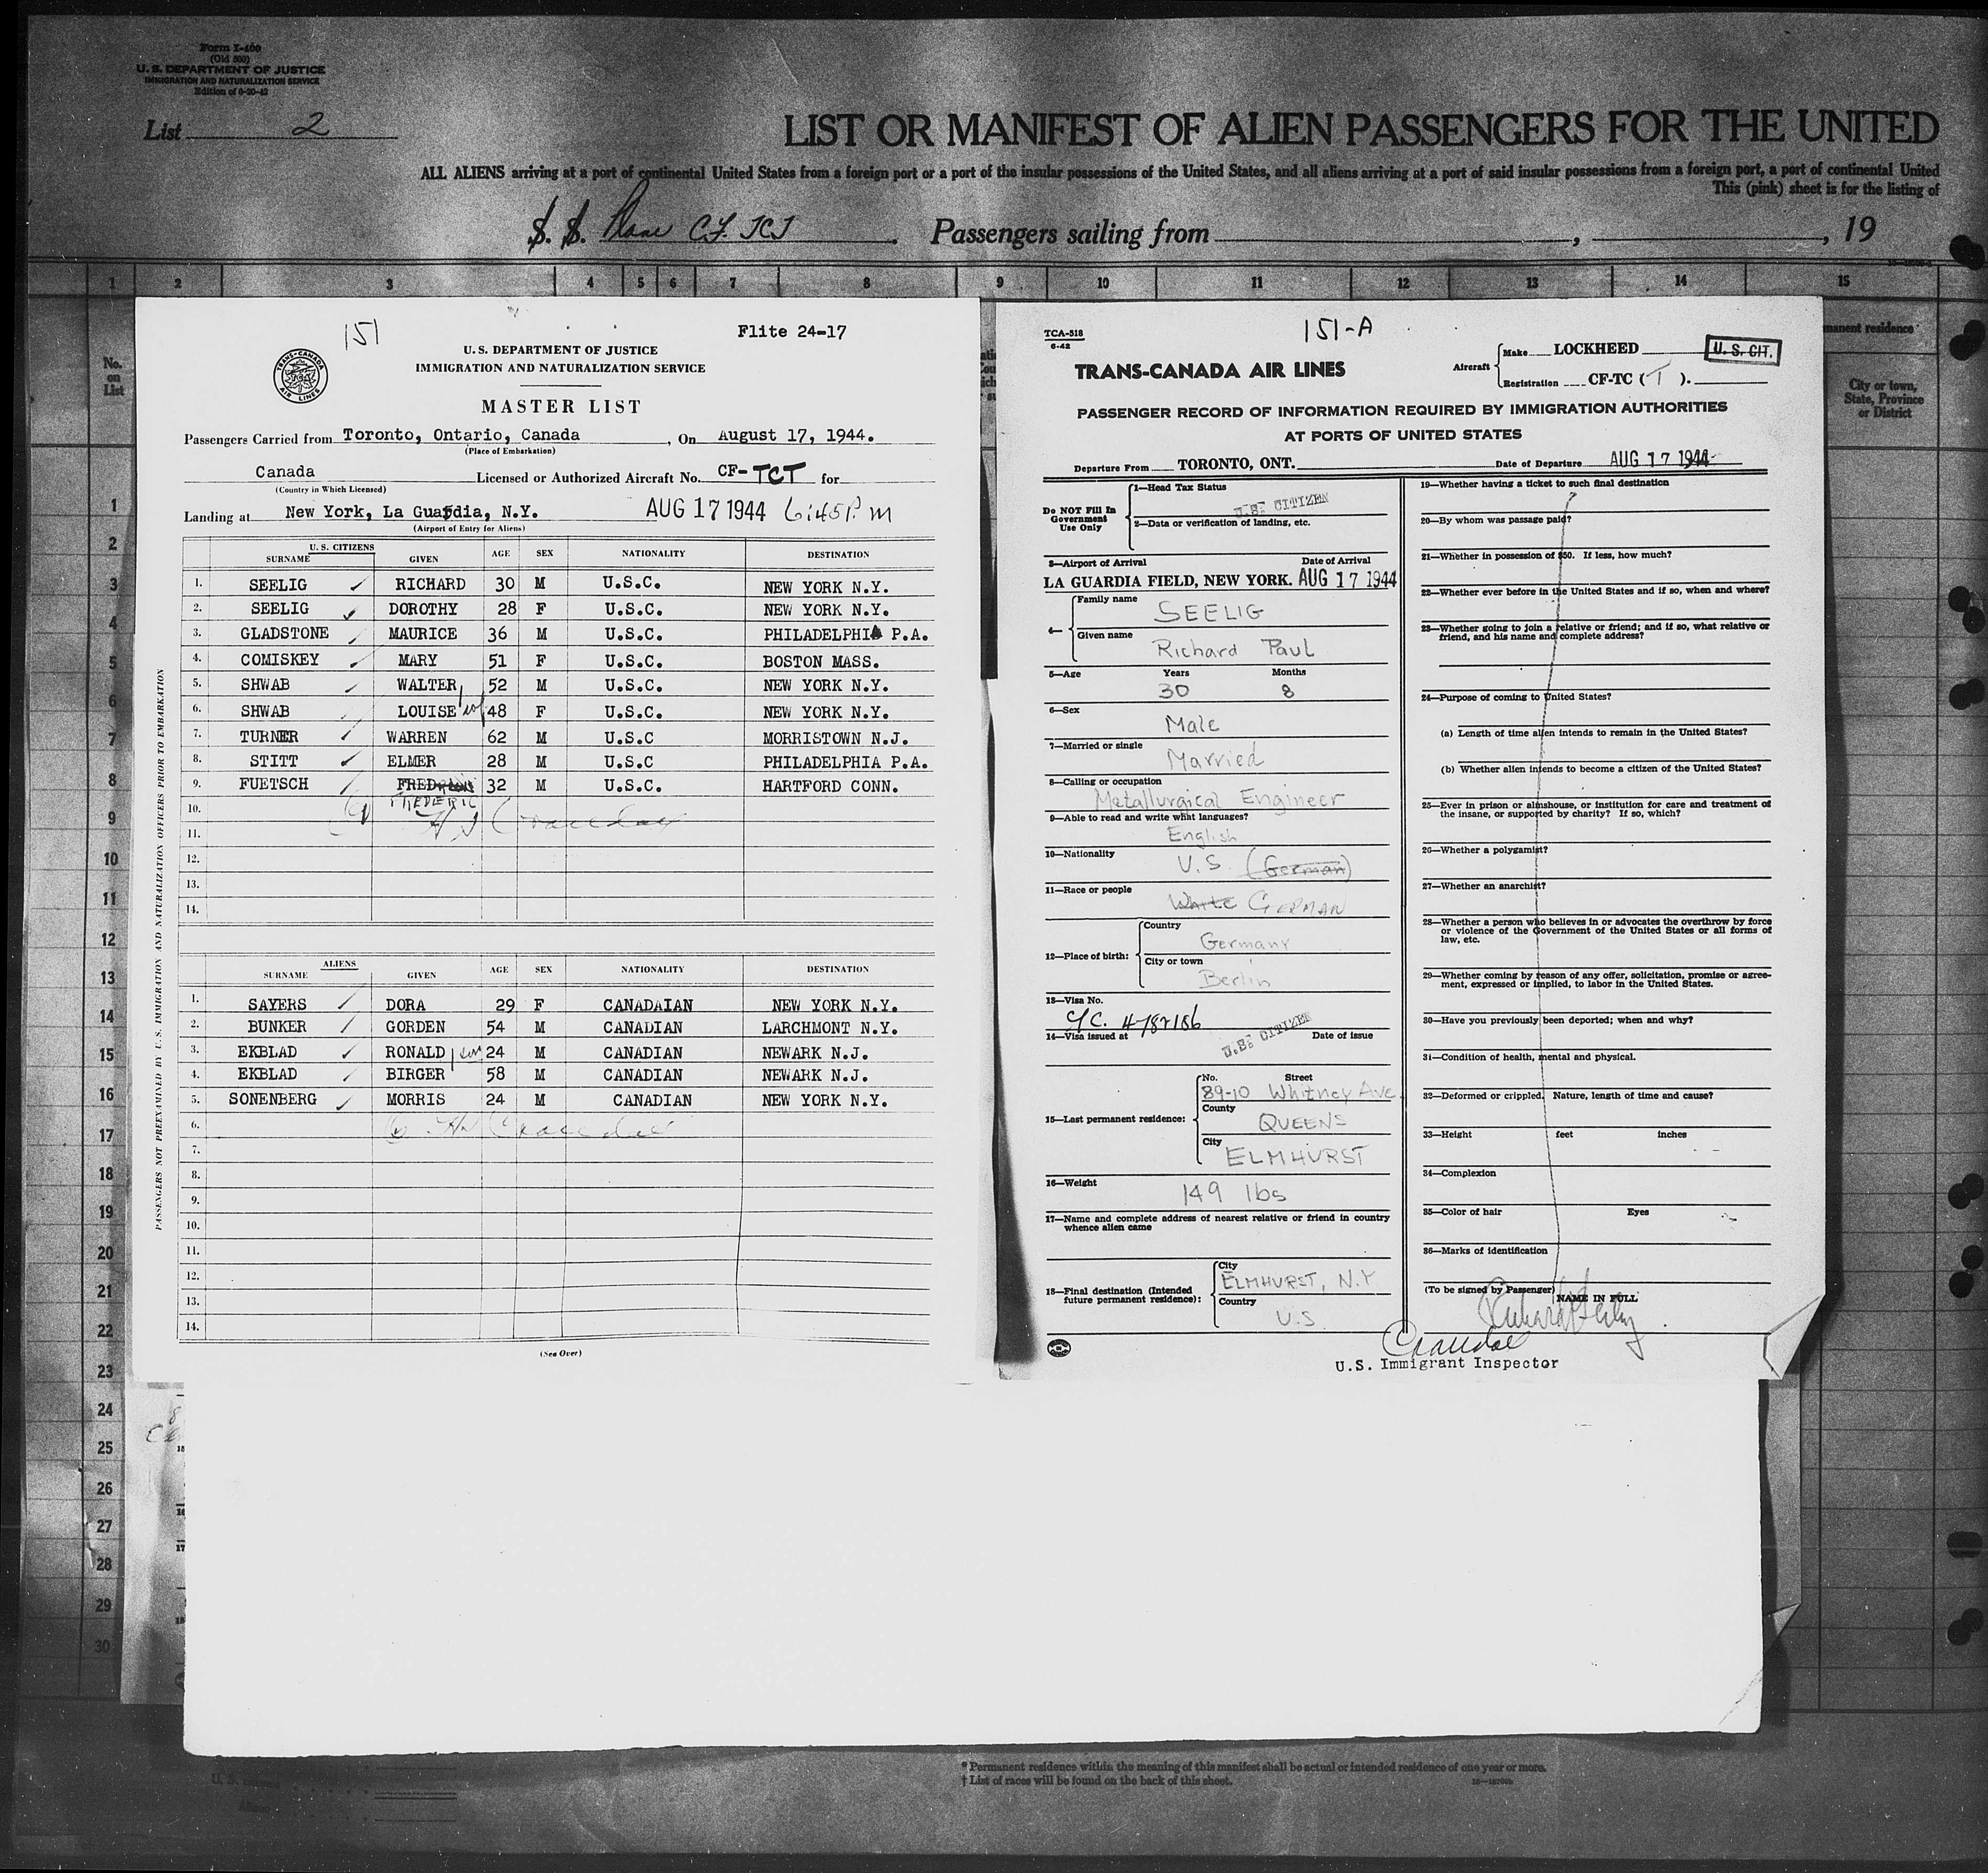 Form I-460
(Old 500)
U. S. DEPARTMENT OF JUSTICE
IMMIGRATION AND NATURALIZATION SERVICE
List 2
LIST OR MANIFEST OF ALIEN PASSENGERS FOR THE UNITED
ALL ALIENS arriving at a port of continental United States from a foreign port or a port of the insular possessions of the United States, and all aliens arriving at a port of said insular possessions from a foreign port, a port of continental United
This (pink) sheet is for the listing of
S. S. Plane CF. TCT. Passengers sailing from , , 19
1 2 3 4 5 6 7 8 9 10 11 12 13 14 15
No. on List
manent residence
City or town, State, Province or District
1
2
3
4
5
6
7
8
9
10
11
12
13
14
15
16
17
18
19
20
21
22
23
24
25
26
27
28
29
30
151 Flite 24-17
TRANS-CANADA AIR LINES
U. S. DEPARTMENT OF JUSTICE
IMMIGRATION AND NATURALIZATION SERVICE
MASTER LIST
Passengers Carried from Toronto, Ontario, Canada, On August 17, 1944.
(Place of Embarkation)
Canada Licensed or Authorized Aircraft No. CF-TCT for
(Country in Which Licensed)
Landing at New York, La Guardia, N.Y. AUG 17 1944 6:45 P.m
(Airport of Entry for Aliens)
U. S. CITIZENS
SURNAME GIVEN AGE SEX NATIONALITY DESTINATION
1. SEELIG RICHARD 30 M U.S.C. NEW YORK N.Y.
2. SEELIG DOROTHY 28 F U.S.C. NEW YORK N.Y.
3. GLADSTONE MAURICE 36 M U.S.C. PHILADELPHIA P.A.
4. COMISKEY MARY 51 F U.S.C. BOSTON MASS.
5. SHWAB WALTER 52 M U.S.C. NEW YORK N.Y.
6. SHWAB LOUISE 48 F U.S.C. NEW YORK N.Y.
7. TURNER WARREN 62 M U.S.C MORRISTOWN N.J.
8. STITT ELMER 28 M U.S.C PHILADELPHIA P.A.
9. FUETSCH FRED 32 M U.S.C. HARTFORD CONN.
FREDERIC
10.
11.
12.
13.
14.
ALIENS
SURNAME GIVEN AGE SEX NATIONALITY DESTINATION
1. SAYERS DORA 29 F CANADAIAN NEW YORK N.Y.
2. BUNKER GORDEN 54 M CANADIAN LARCHMONT N.Y.
3. EKBLAD RONALD son 24 M CANADIAN NEWARK N.J.
4. EKBLAD BIRGER 58 M CANADIAN NEWARK N.J.
5. SONENBERG MORRIS 24 M CANADIAN NEW YORK N.Y.
6.
7.
8.
9.
10.
11.
12.
13.
14.
(See Over)
PASSENGERS NOT PREEXAMINED BY U.S. IMMIGRATION AND NATURALIZATION OFFICERS PRIOR TO EMBARKATION
TCA-518
6-42
151-A
TRANS-CANADA AIR LINES
Aircraft Make LOCKHEED
Registration CF-TC (T).
U. S. CIT.
PASSENGER RECORD OF INFORMATION REQUIRED BY IMMIGRATION AUTHORITIES
AT PORTS OF UNITED STATES
Departure From TORONTO, ONT. Date of Departure AUG 17 1944
Do NOT Fill In Government Use Only
1—Head Tax Status
U.S. CITIZEN
2—Data or verification of landing, etc.
3—Airport of Arrival Date of Arrival
LA GUARDIA FIELD, NEW YORK. AUG 17 1944
4— Family name SEELIG
Given name Richard Paul
5—Age Years Months
30 8
6—Sex
Male
7—Married or single
Married
8—Calling or occupation
Metallurgical Engineer
9—Able to read and write what languages?
English
10—Nationality
U.S. (German)
11—Race or people
White GERMAN
12—Place of birth: Country
Germany
City or town
Berlin
13—Visa No.
C/C. #
14—Visa issued at U.S. CITIZEN Date of issue
15—Last permanent residence: No. Street
89-10 Whitney Ave.
County
QUEENS
City
ELMHURST
16—Weight
149 lbs
17—Name and complete address of nearest relative or friend in country
whence alien came
18—Final destination (Intended future permanent residence): City
ELMHURST, N.Y
Country
U.S.
19—Whether having a ticket to such final destination
20—By whom was passage paid?
21—Whether in possession of $50. If less, how much?
22—Whether ever before in the United States and if so, when and where?
23—Whether going to join a relative or friend; and if so, what relative or
friend, and his name and complete address?
24—Purpose of coming to United States?
(a) Length of time alien intends to remain in the United States?
(b) Whether alien intends to become a citizen of the United States?
25—Ever in prison or almshouse, or institution for care and treatment of
the insane, or supported by charity? If so, which?
26—Whether a polygamist?
27—Whether an anarchist?
28—Whether a person who believes in or advocates the overthrow by force
or violence of the Government of the United States or all forms of
law, etc.
29—Whether coming by reason of any offer, solicitation, promise or agree-
ment, expressed or implied, to labor in the United States.
30—Have you previously been deported; when and why?
31—Condition of health, mental and physical.
32—Deformed or crippled. Nature, length of time and cause?
33—Height feet inches
34—Complexion
35—Color of hair Eyes
36—Marks of identification
(To be signed by Passenger) NAME IN FULL
U.S. Immigrant Inspector
* Permanent residence within the meaning of this manifest shall be actual or intended residence of one year or more.
† List of races will be found on the back of this sheet.